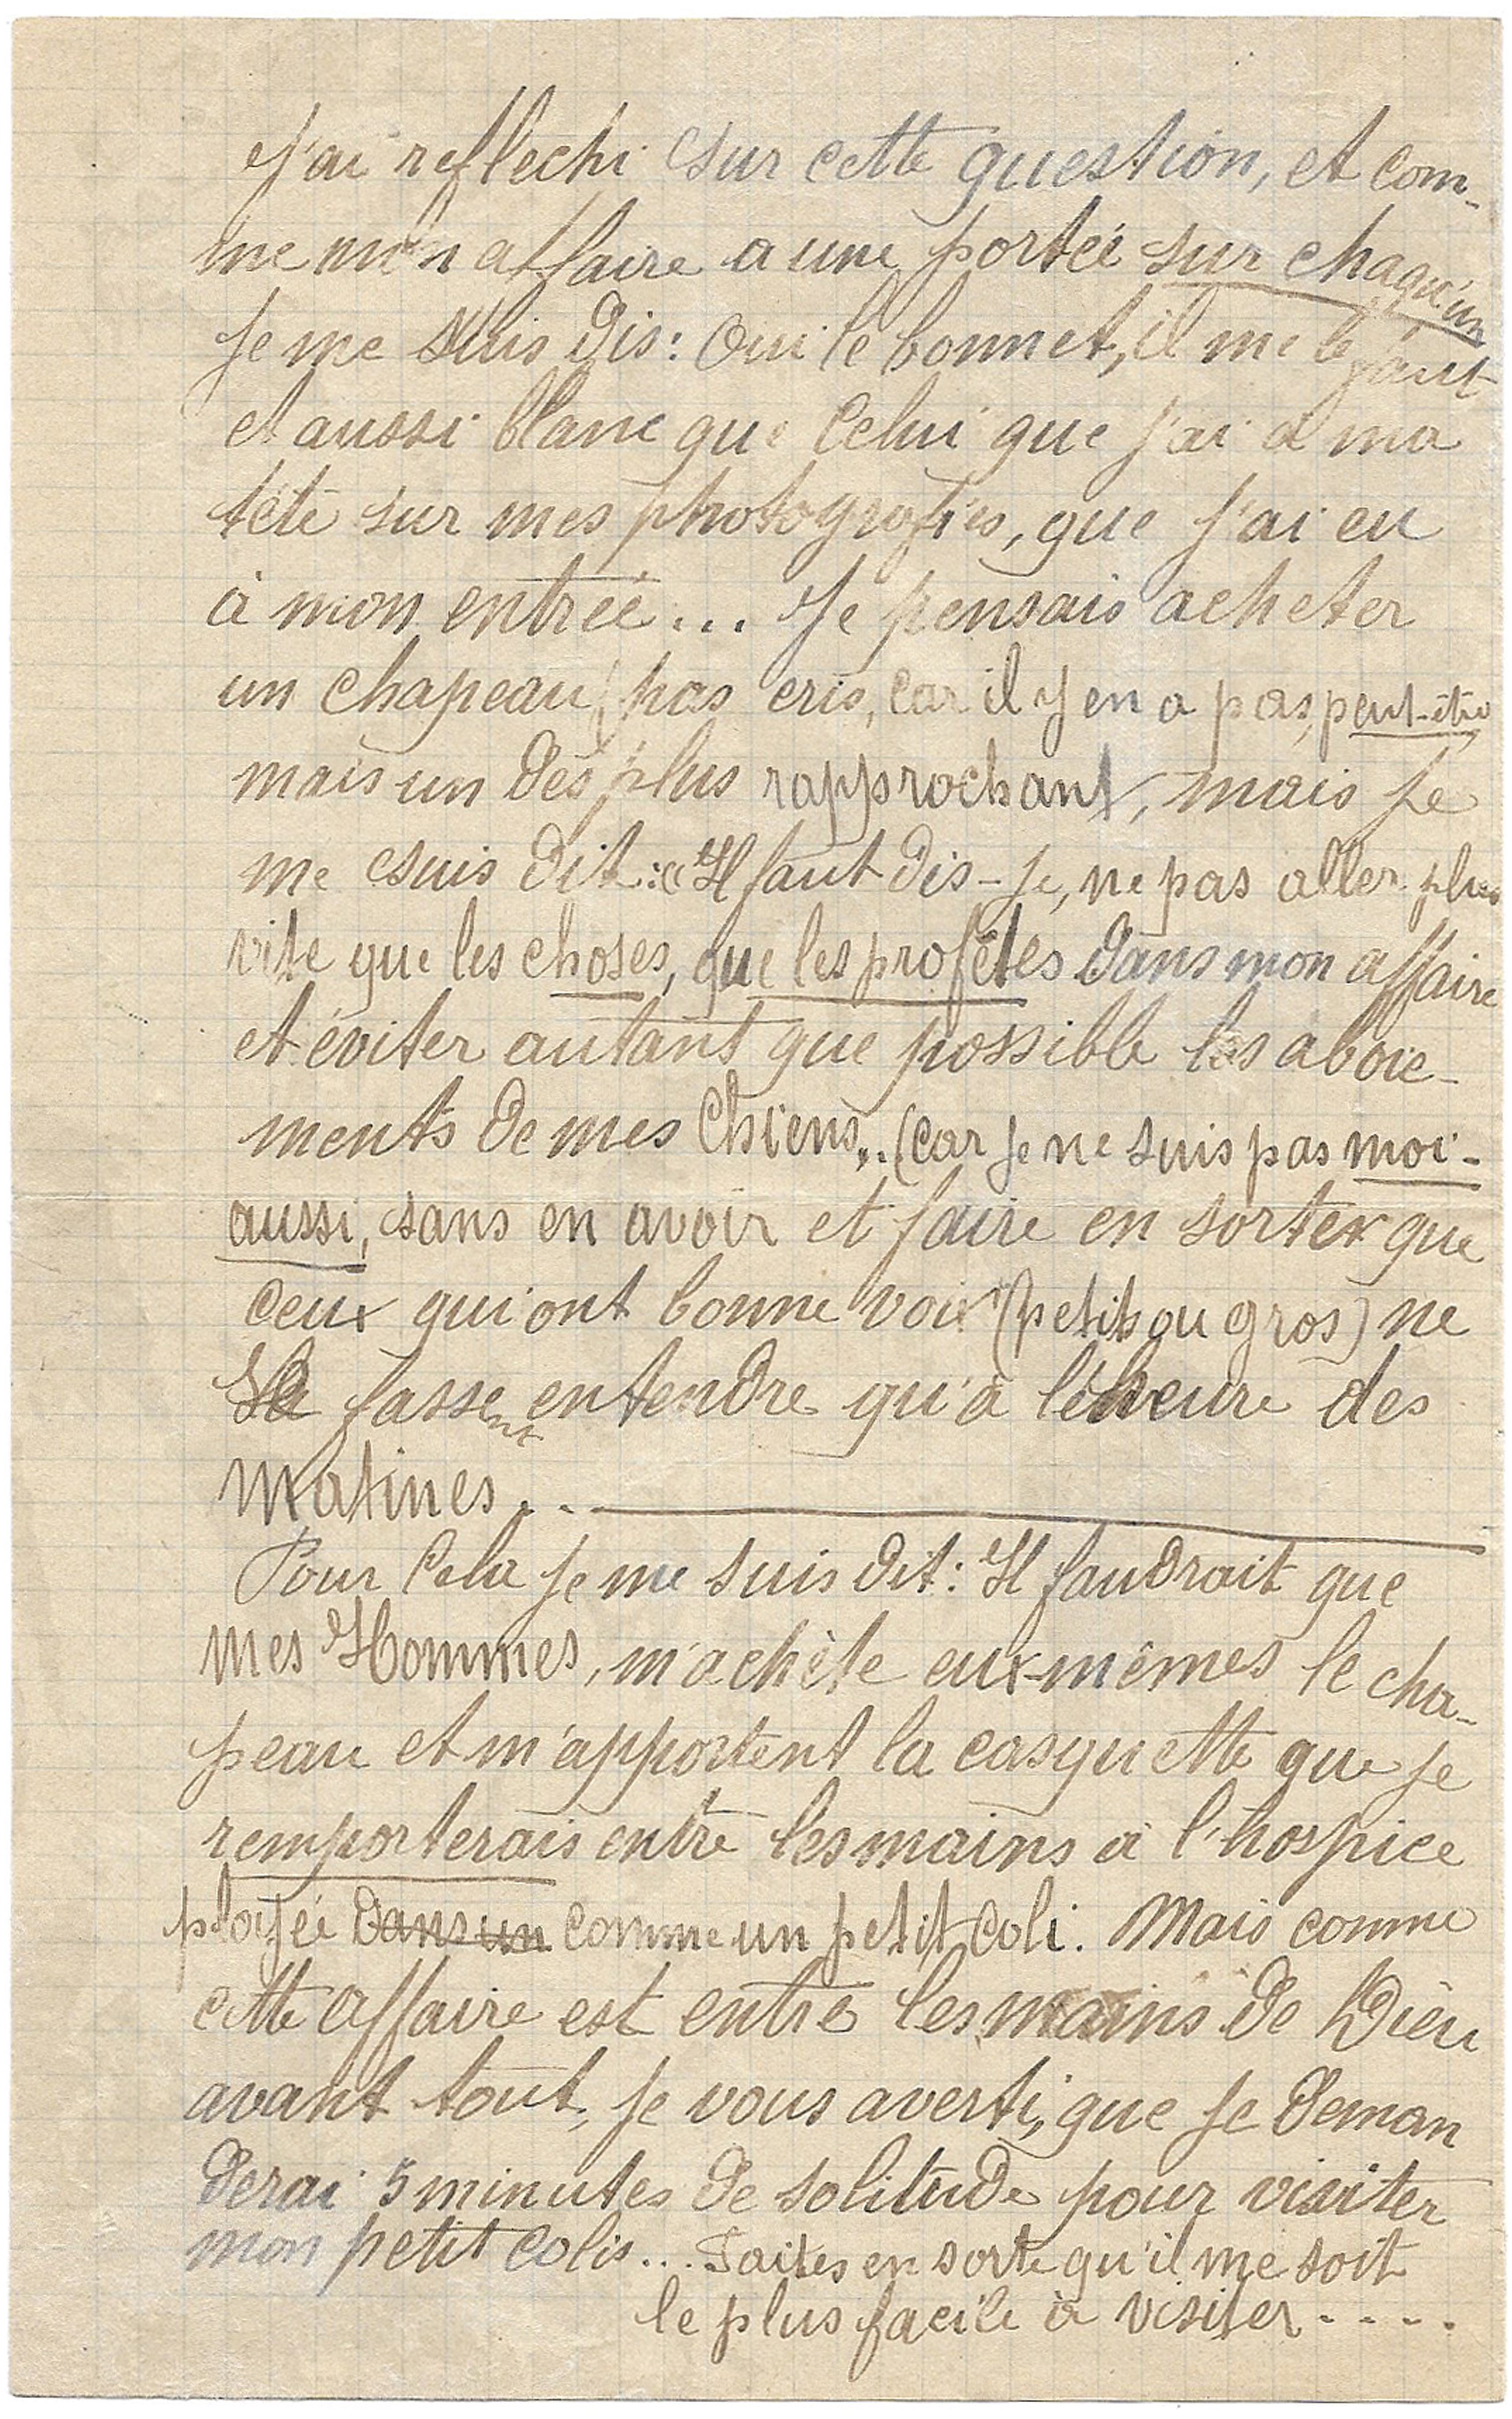 J'ai reflechi sur cette question, et com-
me mon affaire a une portée sur chaqu'un
je me suis dis: Oui le bonnet, il me le faut
et aussi blanc que celui que j'ai à ma
tête sur mes photografies, que j'ai eu
à mon entrée... Je pensais acheter
un chapeau, pas cris, car il y en a pas, peut-être
mais un des plus rapprochant, mais je
me suis dit: « Il faut dis-je, ne pas aller plus
vite que les choses, que les profêtes dans mon affaire
et éviter autant que possible les aboie-
ments de mes Chiens... (car je ne suis pas moi-
aussi, sans en avoir et faire en sorter que
ceux qui ont bonne voix (petits ou gros) ne
se fassent entendre qu'à l'heure des
Matines. . —
Pour Cela je me suis dit: Il faudrait que
mes Hommes, m'achète eux-mêmes le cha-
peau et m'apportent la casquette que je
remporterais entre les mains à l'hospice
ployée dans un comme un petit coli. Mais comme
cette affaire est entre les mains de Dieu
avant tout, je vous averti, que je deman
derai 5 minutes de solitude pour visiter
mon petit colis... Faites en sorte qu'il me soit
le plus facile à visiter - - - -.